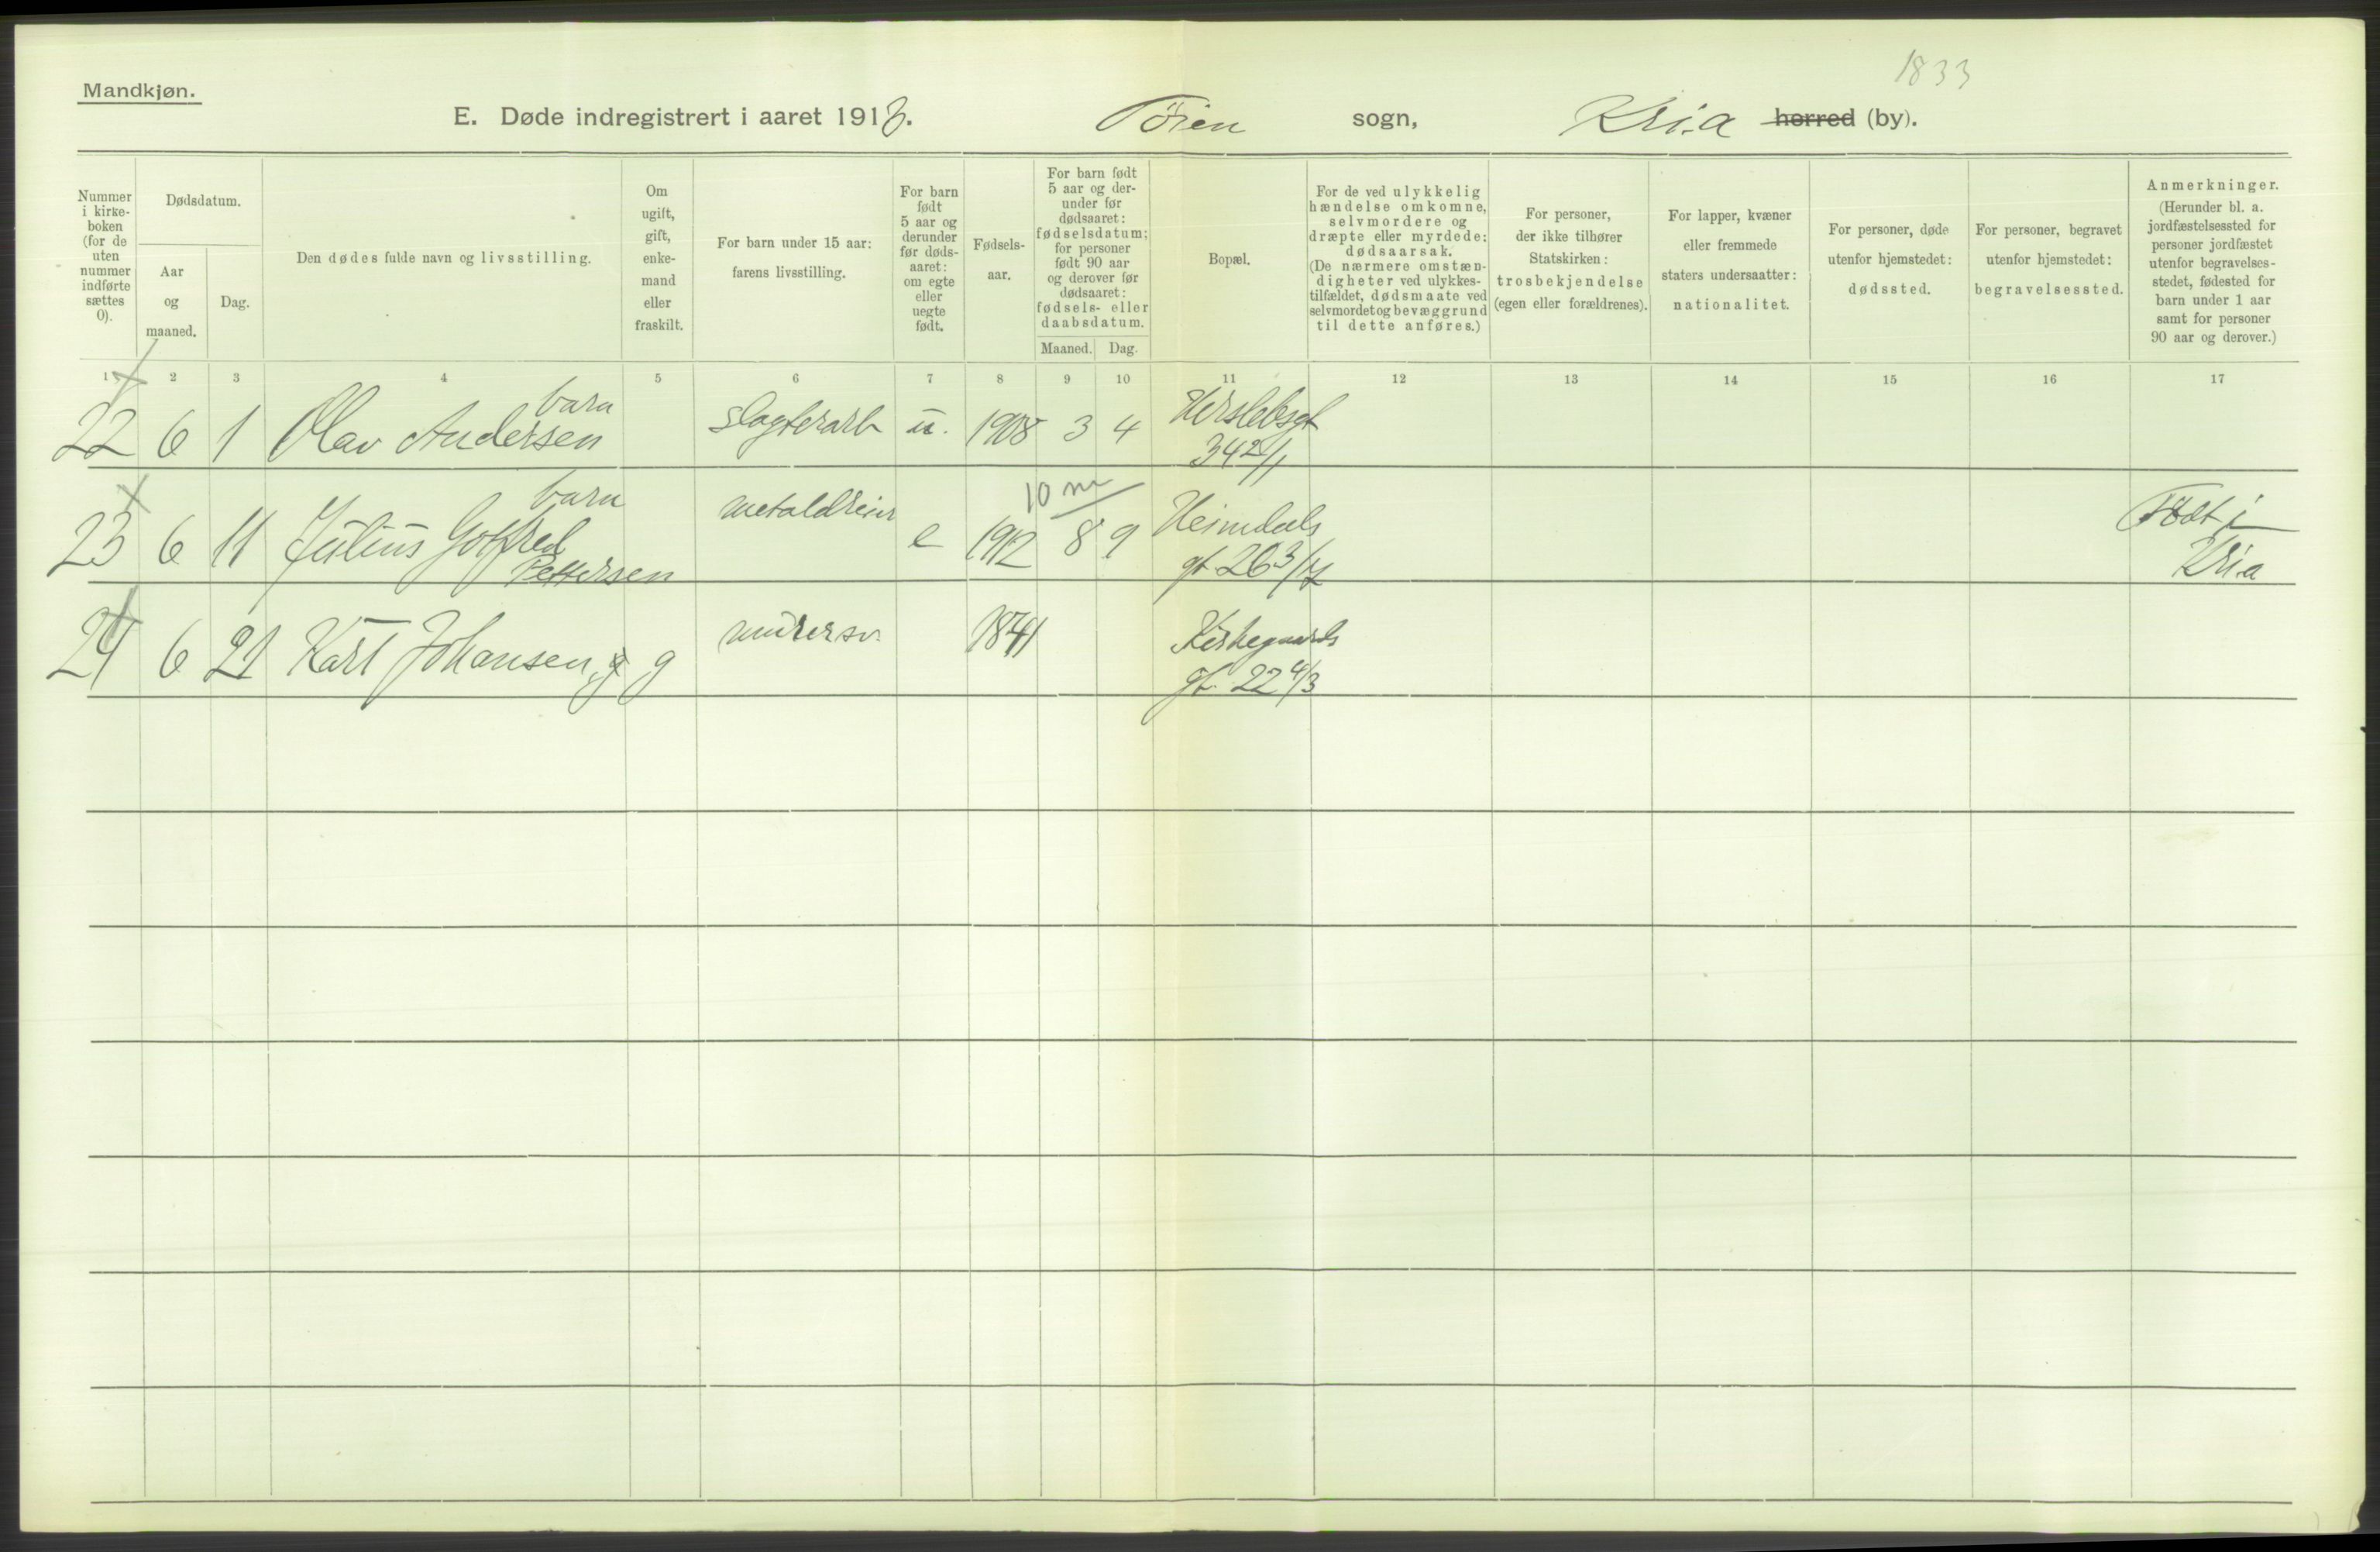 1833
Mandkjøn.
E. Døde indregistrert i aaret 1913. Tøien sogn, Kria herred (by).
Nummer i kirke-boken (for de uten nummer indførte sættes 0).
Dødsdatum.
Aar og maaned.
Dag.
Den dødes fulde navn og livsstilling.
Om ugift, gift, enke-mand eller fraskilt.
For barn under 15 aar: farens livsstilling.
For barn født 5 aar og derunder før døds-aaret: om egte eller uegte født.
Fødsels-aar.
For barn født 5 aar og der-under før dødsaaret: fødselsdatum; for personer født 90 aar og derover før dødsaaret: fødsels- eller daabsdatum.
Maaned. Dag.
Bopæl.
For de ved ulykkelig hændelse omkomne, selvmordere og dræpte eller myrdede: dødsaarsak. (De nærmere omstæn-digheter ved ulykkes-tilfældet, dødsmaate ved selvmordet og bevæggrund til dette anføres.)
For personer, der ikke tilhører Statskirken: trosbekjendelse (egen eller forældrenes).
For lapper, kvæner eller fremmede staters undersaatter: nationalitet.
For personer, døde utenfor hjemstedet: dødssted.
For personer, begravet utenfor hjemstedet: begravelsessted.
Anmerkninger. (Herunder bl. a. jordfæstelsessted for personer jordfæstet utenfor begravelses-stedet, fødested for barn under 1 aar samt for personer 90 aar og derover.)
1 2 3 4 5 6 7 8 9 10 11 12 13 14 15 16 17
22 6 1 Olav Andersen barn slagterarb u. 1908 3 4 Herslebsgt 34 2/1
23 6 11 Julius Gotfred Pettersen barn metaldreier e 1912 10 m 8 9 Heimdals gt. 26 3/4 Født i Kria
24 6 21 Karl Johansen, g g murersv. 1841 Kirkegaards gt. 22 4/3